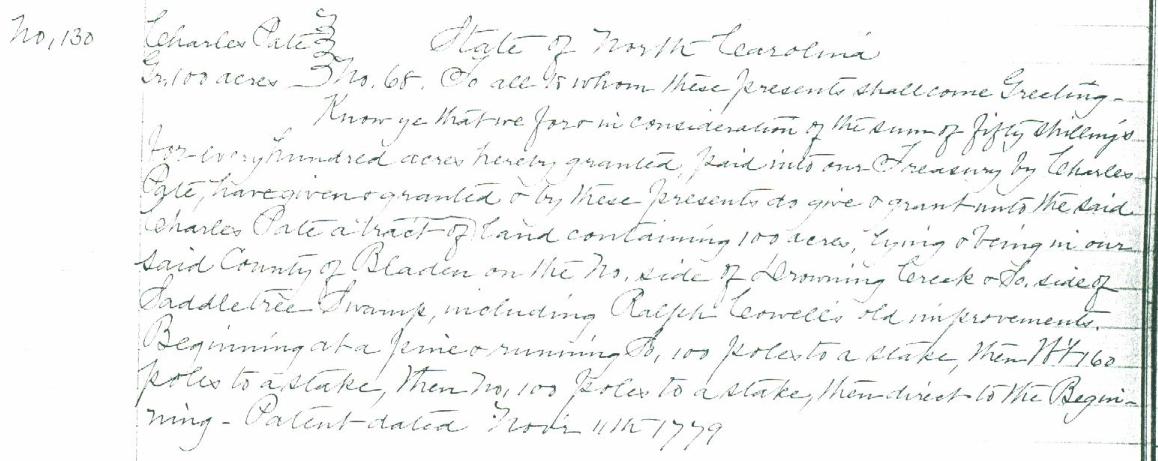 No, 130 Charles Pate State of North Carolina
Gr. 100 acres No. 68. To all to whom these presents shall come Greeting -
Know ye that we for & in consideration of the sum of fifty shillings
for every hundred acres hereby granted, paid into our Treasury by Charles
Pate, have given & granted & by these presents do give & grant unto the said
Charles Pate a tract of land containing 100 acres, lying & being in our
said County of Bladen on the No. side of Drowning Creek & So. side of
Saddletree Swamp, including Ralph Cowell's old improvements.
Beginning at a pine & running So, 100 poles to a stake, then 160
poles to a stake, then No, 100 poles to a stake, then direct to the Begin-
ning - Patent dated Nov'r 11th 1779